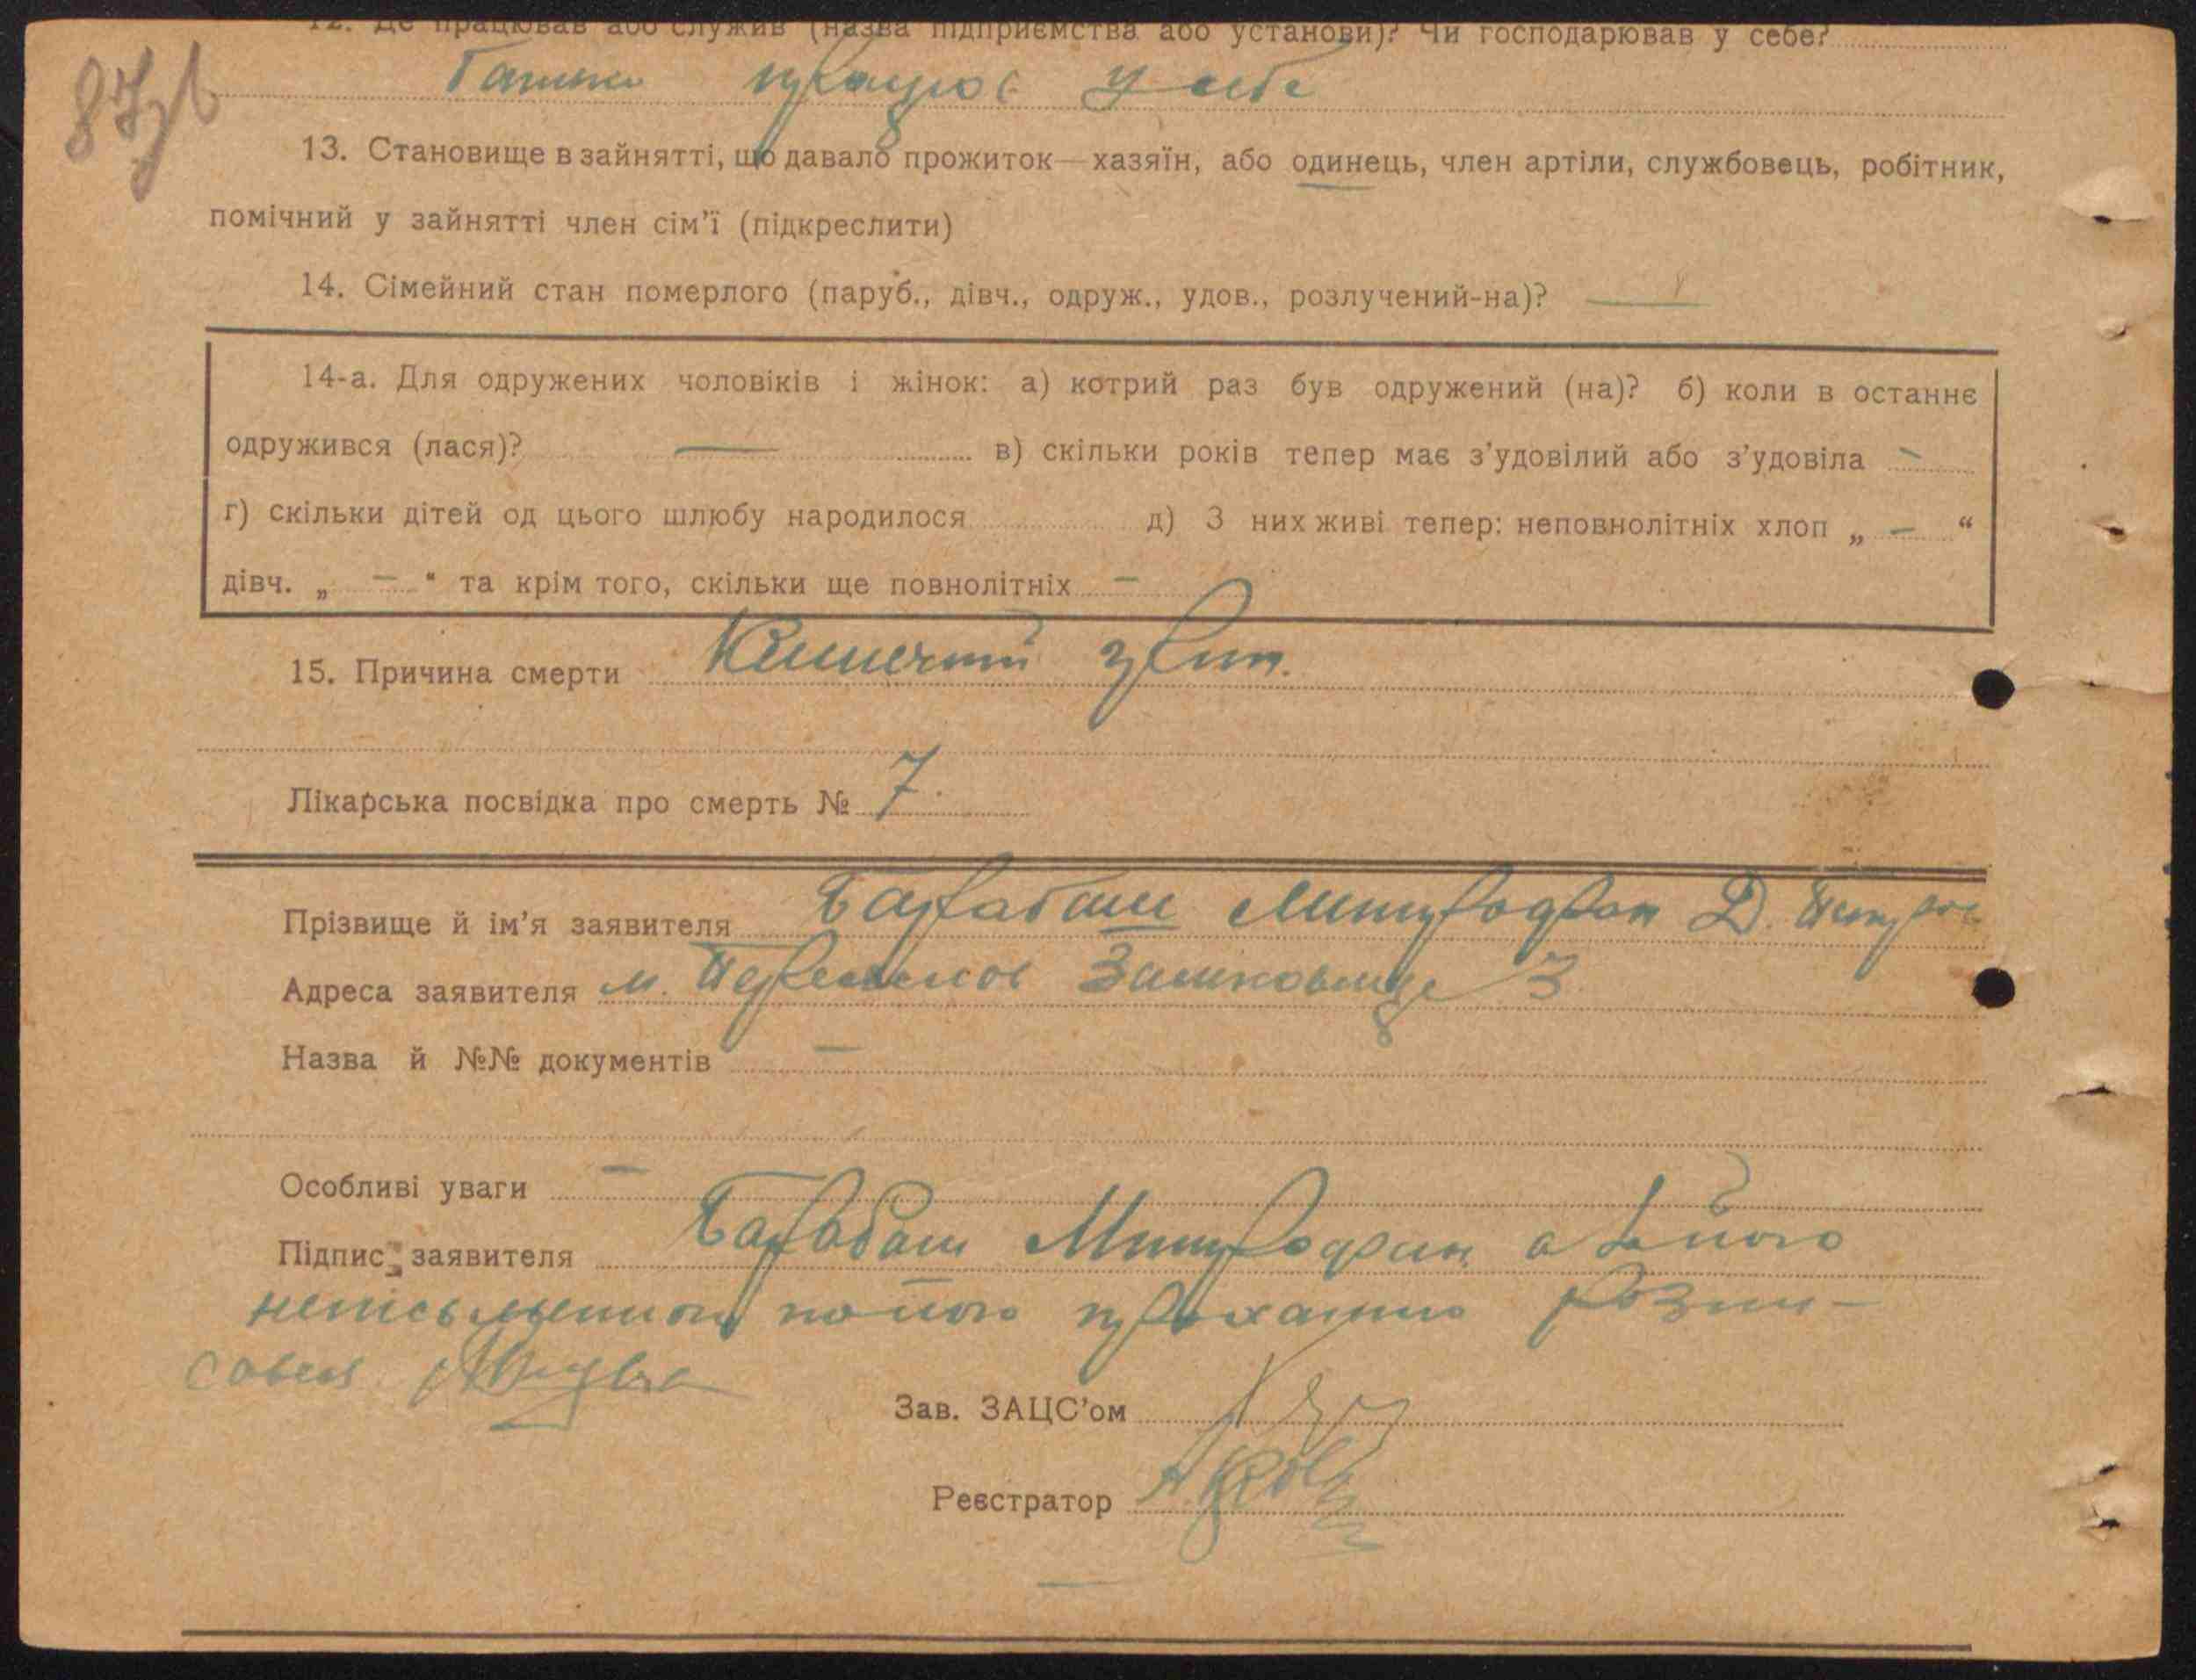 12. Де працював або служив (назва підприємства або установи)? Чи господарював у себе?
87зв
Батько працює у себе
13. Становище в зайнятті, що давало прожиток—хазяїн, або одинець, член артіли, службовець, робітник,
помічний у зайнятті член сім'ї (підкреслити)
14. Сімейний стан померлого (паруб., дівч., одруж., удов., розлучений-на)? —
14-а. Для одружених чоловіків і жінок: а) котрий раз був одружений (на)? б) коли в останнє
одружився (лася)? — в) скільки років тепер має з'удовілий або з'удовіла —
г) скільки дітей од цього шлюбу народилося д) З них живі тепер: неповнолітніх хлоп „ — “
дівч. „ — “ та крім того, скільки ще повнолітніх —
15. Причина смерти Кишечний грип.
Лікарська посвідка про смерть № 7.
Прізвище й ім'я заявителя Барабаш Митрофан Д.
Адреса заявителя м. 3
Назва й №№ документів —
Особливі уваги —
Підпис заявителя Барабаш Митрофан а за його
неписьменного по його проханню розпи-
сався
Зав. ЗАЦС'ом
Реєстратор